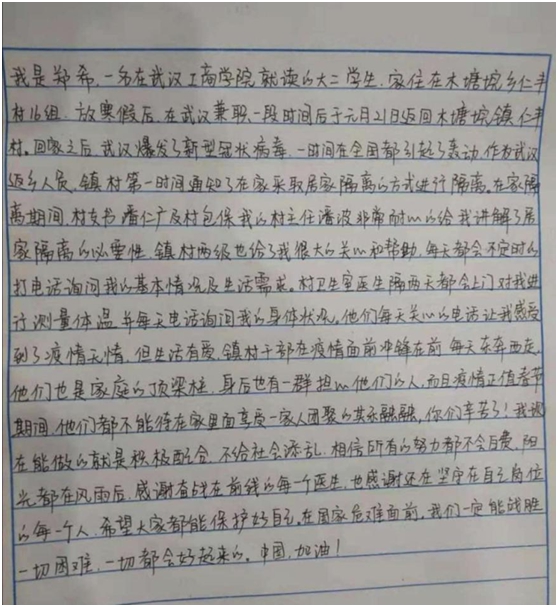 我是郑希，一名在武汉工商学院就读的大二学生，家住在木塘垸乡仁丰
村16组。放寒假后，在武汉兼职一段时间后于元月21日返回木塘垸镇仁丰
村。回家之后，武汉爆发了新型冠状病毒，一时间在全国都引起了轰动，作为武汉
返乡人员，镇村第一时间通知了在家采取居家隔离的方式进行隔离。在家隔
离期间，村支书潘仁广及村包保我的村主任潘波非常耐心的给我讲解了居
家隔离的必要性，镇村两级也给了我很大的关心和帮助，每天都会不定时的
打电话询问我的基本情况及生活需求。村卫生室医生隔两天都会上门对我进
行测量体温，并每天电话询问我的身体状况。他们每天关心的电话让我感受
到了疫情无情，但生活有爱。镇村干部在疫情面前冲锋在前，每天东奔西走，
他们也是家庭的顶梁柱，身后也有一群担心他们的人，而且疫情正值春节
期间，他们都不能待在家里面享受一家人团聚的其乐融融，你们辛苦了！我现
在能做的就是积极配合，不给社会添乱，相信所有的努力都不会白费，阳
光都在风雨后，感谢奋战在前线的每一个医生，也感谢还在坚守在自己岗位
的每一个人，希望大家都能保护好自己，在国家危难面前，我们一定能战胜
一切困难，一切都会好起来的。中国，加油！